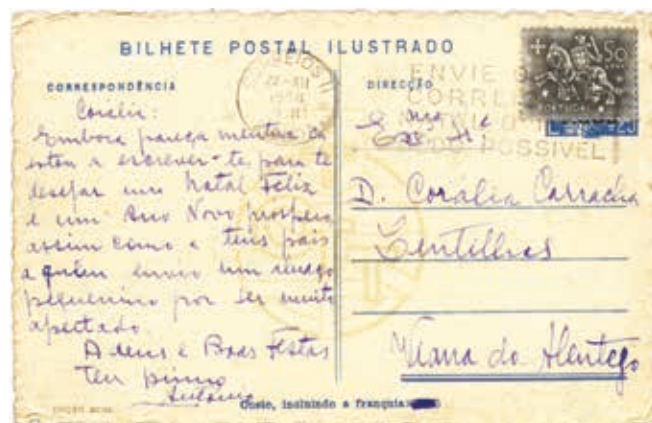 BILHETE POSTAL ILUSTRADO
CORRESPONDÊNCIA
Corália:
Embora pareça mentira cá
estou a escrever-te para te
desejar um Natal Feliz
e um Ano Novo prospero
assim como a teus pais
a quem envio um
pequenino por ser muito
apertado.
Adeus e Boas Festas
Teu primo
António
DIRECÇÃO
CORREIOS
ENVIE O
CORRE
POSSIVEL
50
PORTUGAL
D. Corália Carracha
Viana do Alentejo
Custo, incluindo a franquia: